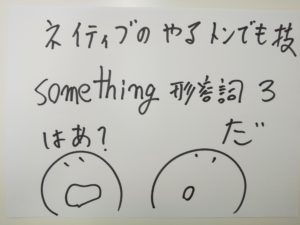 ネイティブの やる トンでも技
something 形容詞 3
はあ? だ